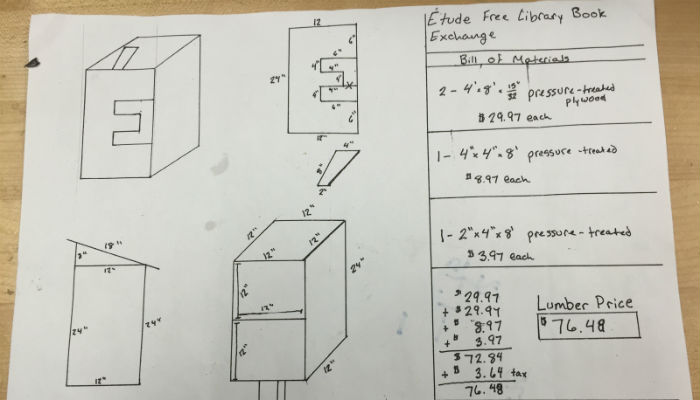 12
6"
6"
4"
4"
4"
24"
4"
4"
6"
6"
12"
4"
8"
2"
18"
8"
12"
24"
24"
12"
12"
12"
12"
12"
24"
12"
12"
12"
12"
Étude Free Library Book
Exchange
Bill of Materials
2 - 4' × 8' × 15"/32 pressure-treated
plywood
$29.97 each
1 - 4" × 4" × 8' pressure-treated
$8.97 each
1 - 2" × 4" × 8' pressure-treated
$3.97 each
$29.97
+ $29.97
+ $8.97
+ $3.97
$72.84
+ $3.64 tax
76.48
Lumber Price
$76.48